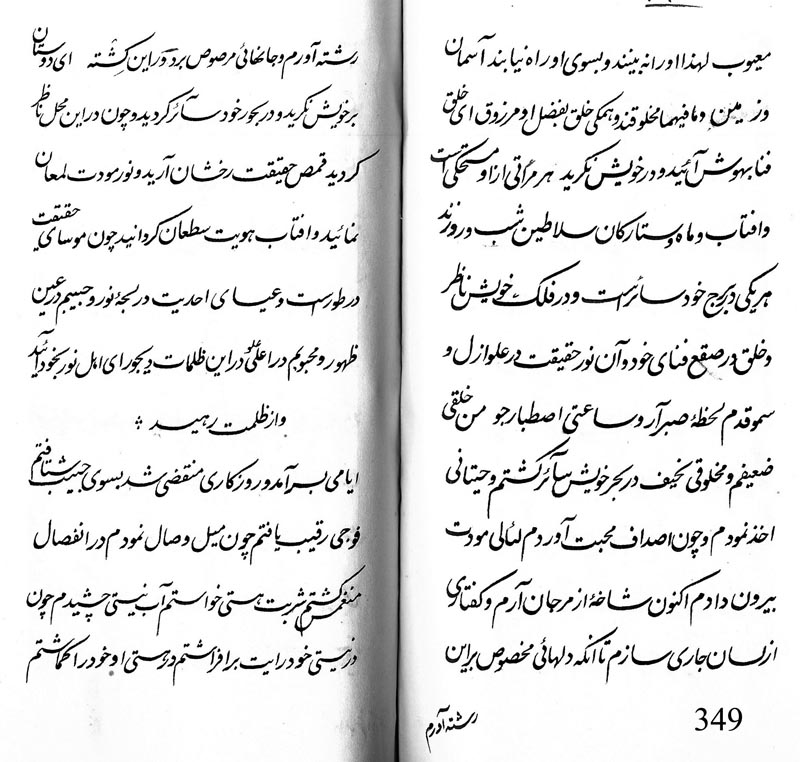 معیوب لهذا او را نه بینند و بسوی او راه نیابند آسمان
و زمین و ما فیها مخلوقند و همکی خلق بفضل او مرزوق ای خلق
فنا بهوش آئید و در خویش نکرید هر مرآتی از او مستحکی است
و افتاب و ماه و ستارکان سلاطین شب و روزند
هر یکی در برج خود سائر است و در فلک خویش ناظر
و خلق در صقع فنای خود و آن نور حقیقت در علو ازل و
سمو قدم لحظهٔ صبر آر و ساعتی اصطبار جو من خلقی
ضعیفم و مخلوقی نحیف در بحر خویش سائر کشتم و حیتانی
اخذ نمودم و چون اصداف محبت آوردم لئالی مودت
بیرون دادم اکنون شاخهٔ از مرجان آرم و کفتاری
از لسان جاری سازم تا آنکه دلهائی مخصوص بر این
رشته آورم
349
رشته آورم و جانهائی مرصوص بر در این کشته ای دوستان
بر خویش نکرید و در بحور خود سائر کردید و چون در این محل ناظر
کردید قمص حقیقت رخشان آرید و نور مودت لمعان
نمائید و افتاب هویت سطعان کردانید چون موسای حقیقت
در طور است و عیسای احدیت در لجهٔ نور و حبیبم در عین
ظهور و محبوبم در اعلی علو در این ظلمات دیجور ای اهل نور بخود آئید
و از ظلمت رهید
ایامی بسر آمد و روزکاری منقضی شد بسوی حبیب شتافتم
فوجی رقیب یافتم چون میل وصال نمودم در انفصال
منغمس کشتم شربت هستی خواستم آب نیستی چشیدم چون
در نیستی خود رایت برافراشتم در هستی او خود را کماشتم